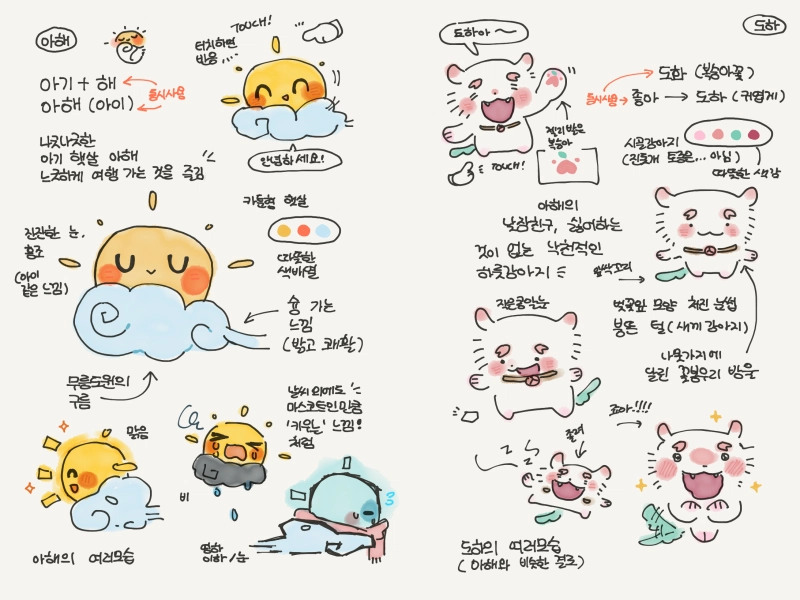 아해
TOUCH!
터치하면
반응...
아기 + 해
아해 (아이)
동시사용
나긋나긋한
아기 햇살 아해
느긋하게 여행 가는 것을 즐김
안녕하세요!
카툰형 햇살
잔잔한 눈,
홍조
(아이
같은 느낌)
따뜻한
색배열
슝 가는
느낌
(밝고 쾌활)
무릉도원의
구름
날씨 외에도
마스코트인만큼
'키우는' 느낌!
처럼
맑음
비
영하
이하/눈
아해의 여러모습
도하
도하아~
도화 (복숭아꽃)
동시사용
좋아 → 도하 (귀엽게)
젤리 발은
복숭아
TOUCH!
시골강아지
(진돗개 토종은... 아님)
따뜻한 색감
아해의
낮잠친구, 싫어하는
것이 없는 낙천적인
하룻강아지
잎싹꼬리
작은콩알눈
벚꽃잎 모양 처진 눈썹
봉뜬 털 (새끼 강아지)
나뭇가지에
달린 꽃봉우리 방울
졸려
조아!!!!
도하의 여러모습
(아해와 비슷한 결로)